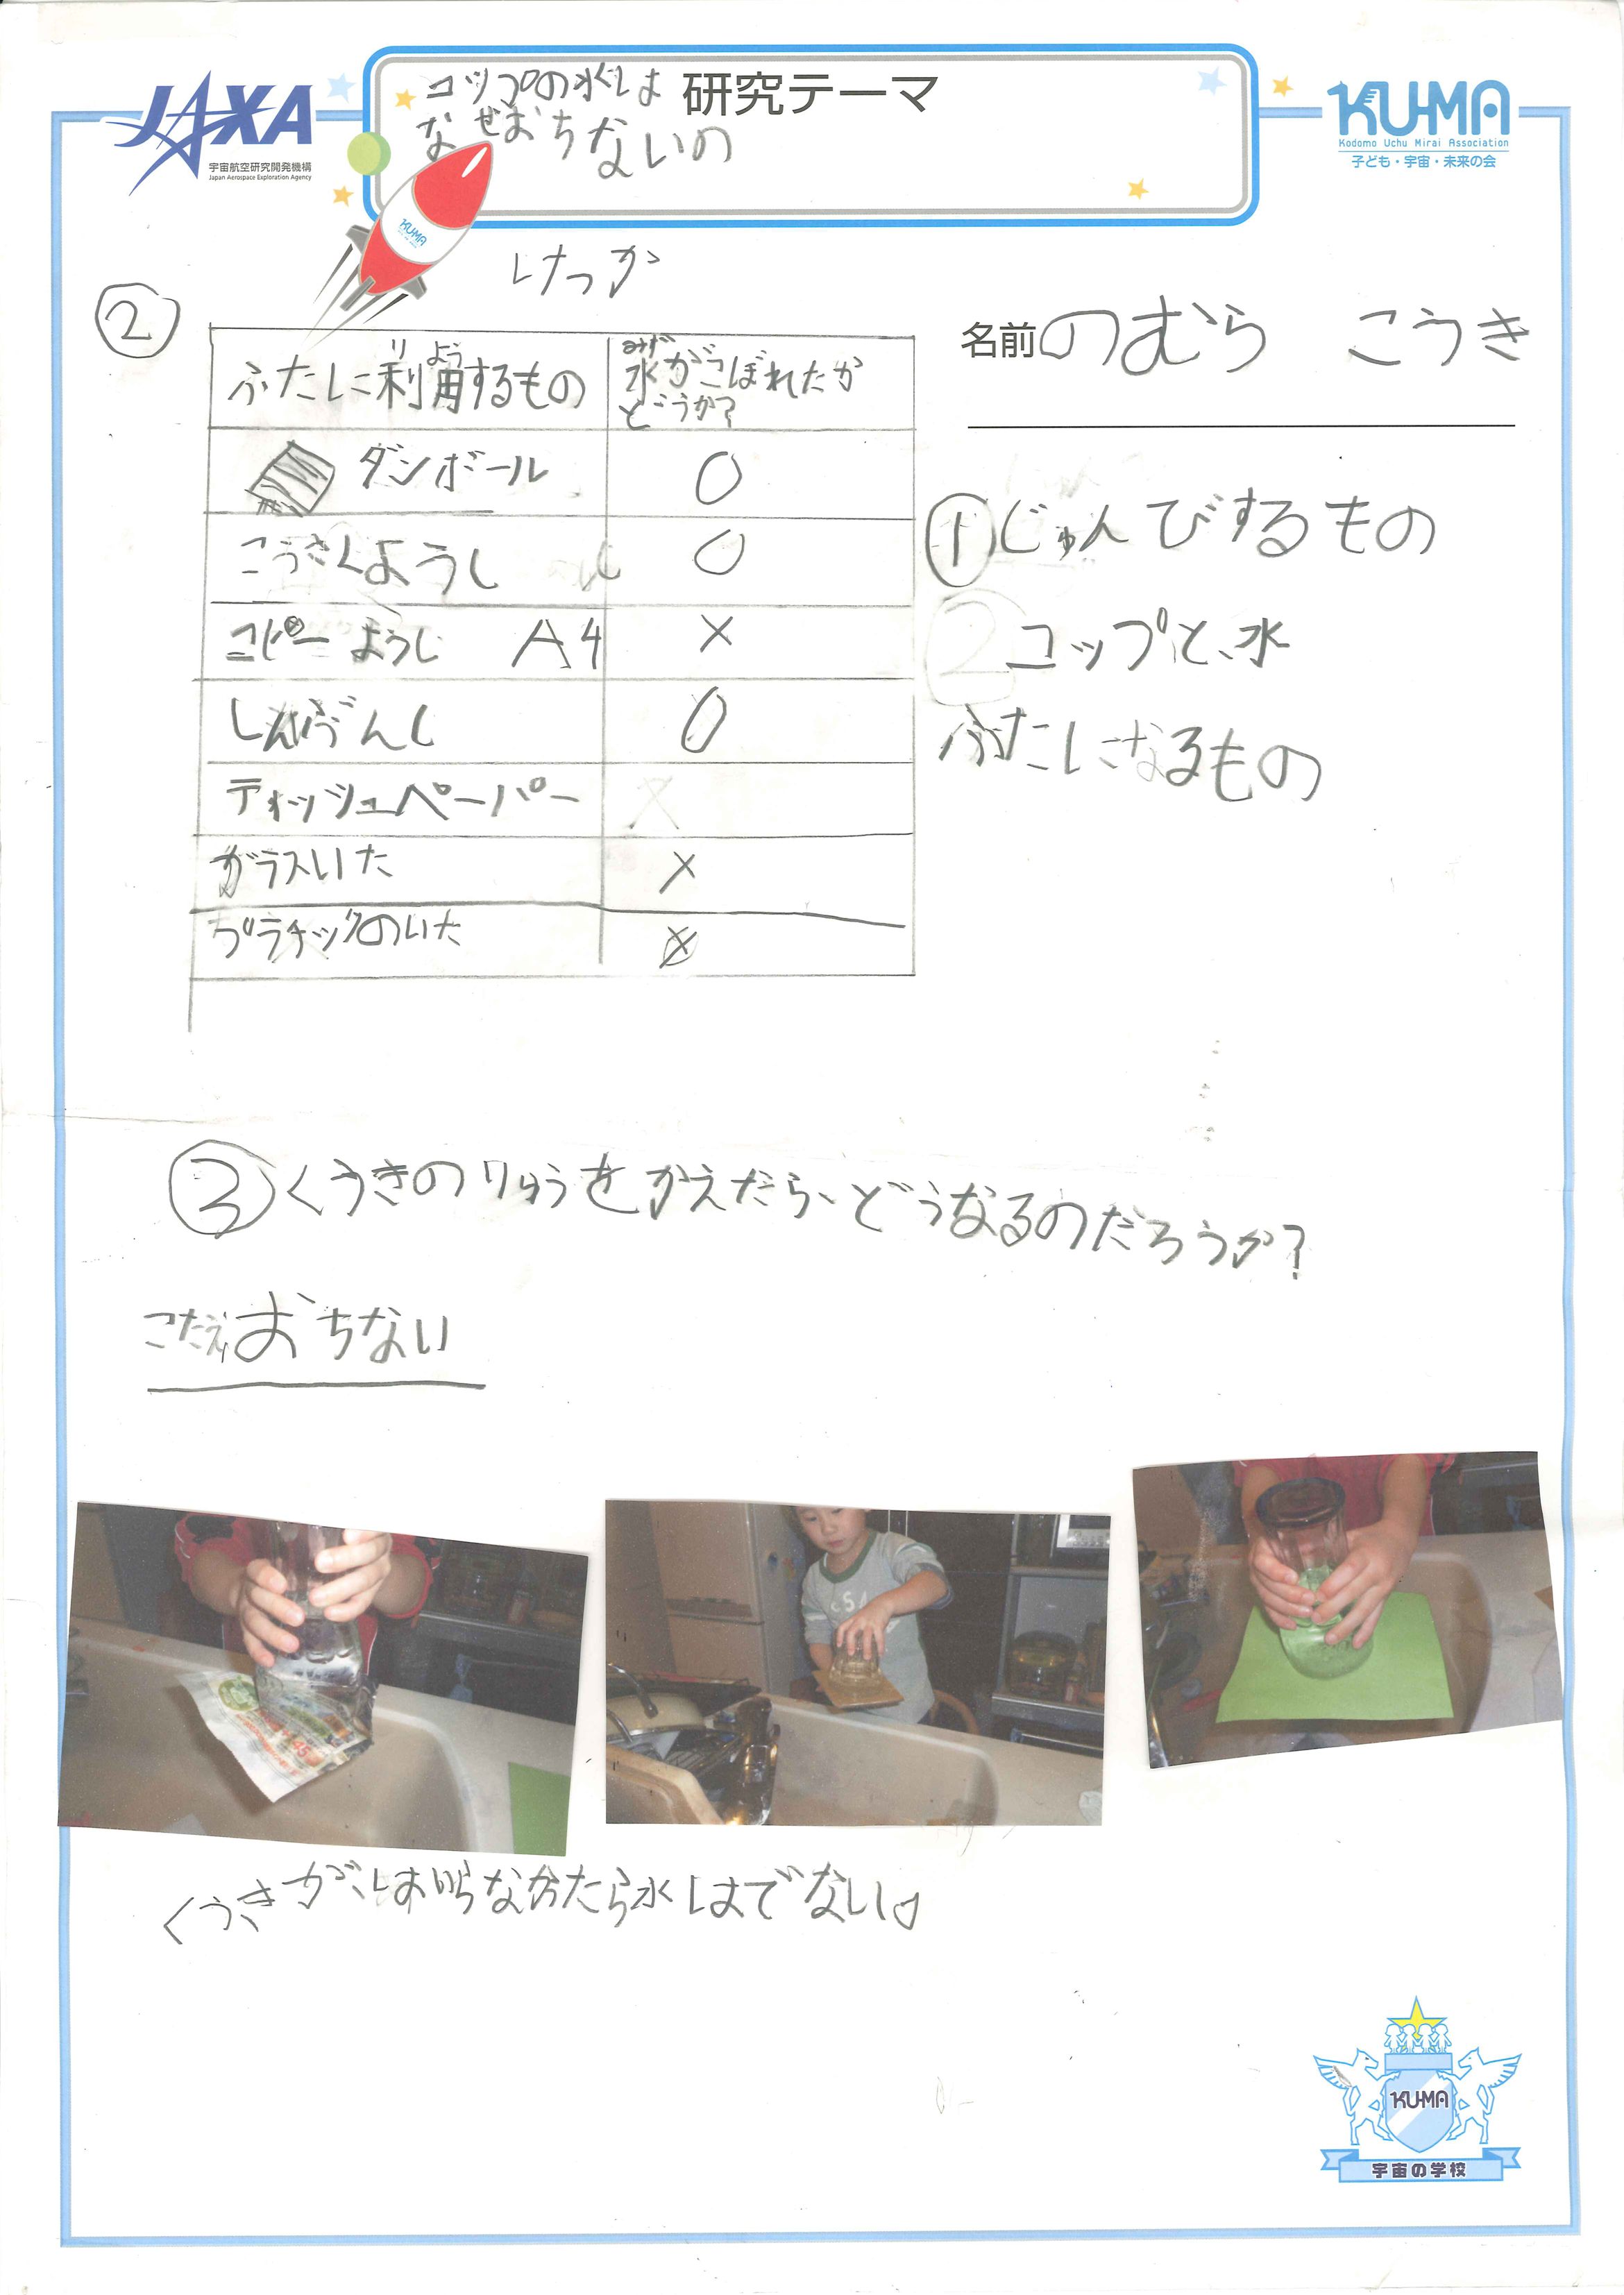 JAXA
宇宙航空研究開発機構
Japan Aerospace Exploration Agency
研究テーマ
コップの水は
なぜおちないの
KU-MA
Kodomo Uchu Mirai Association
子ども・宇宙・未来の会
KU-MA
けっか
名前 のむら こうき
②
ふたに利用するもの 水がこぼれたかどうか?
りよう みず
ダンボール ○
こうさくようし ○
コピーようし A4 ×
しんぶんし ○
ティッシュペーパー ×
がラスいた ×
プラチックのいた ×
①じゅんびするもの
コップと、水
ふたになるもの
③くうきのりゅうをかえだら、どうなるのだろうか?
こたえ おちない
くうきが、はいらなかたら水はでない。
KU-MA
宇宙の学校